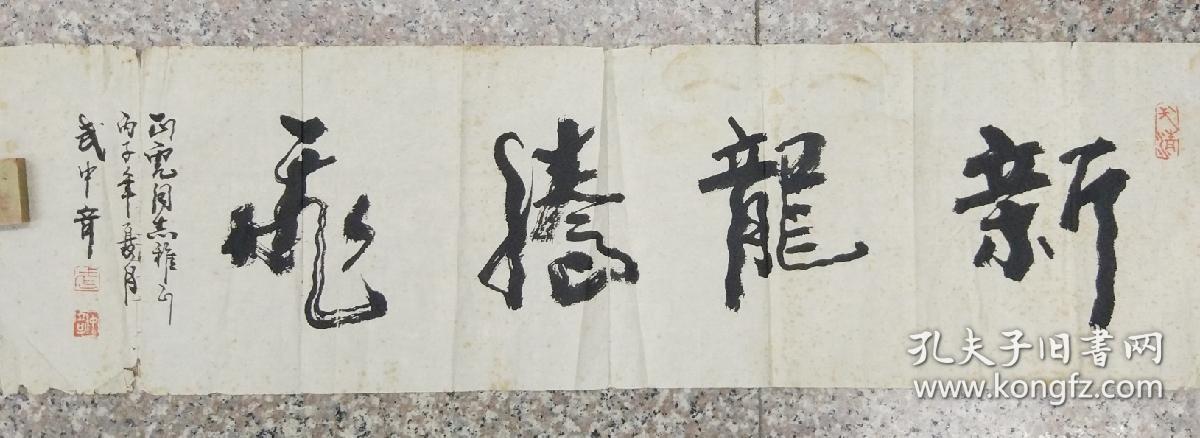 新龍騰飛
同志雅正
丙子年夏月
武中奇
孔夫子旧書网
www.kongfz.com